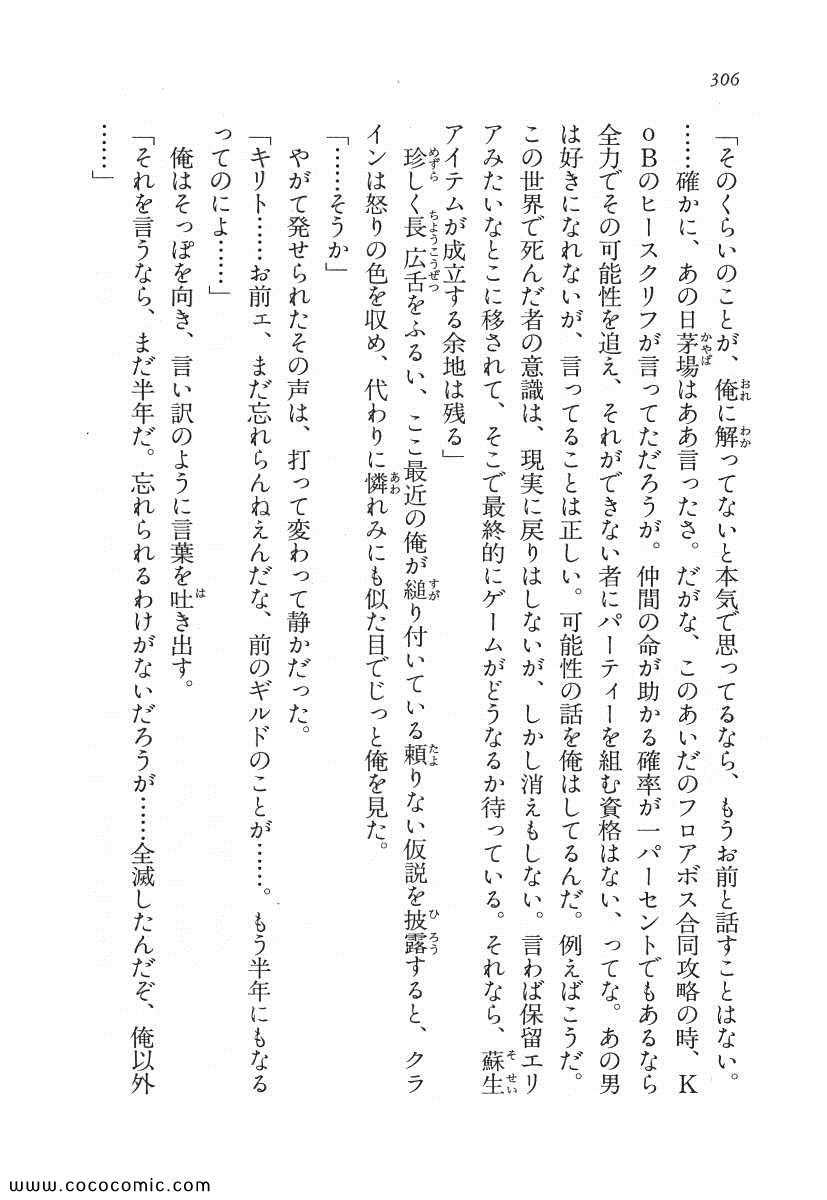 306
「そのくらいのことが、俺に解ってないと本気で思ってるなら、もうお前と話すことはない。
……確かに、あの日茅場はああ言ったさ。だがな、このあいだのフロアボス合同攻略の時、K
oBのヒースクリフが言ってただろうが。仲間の命が助かる確率が一パーセントでもあるなら
全力でその可能性を追え、それができない者にパーティーを組む資格はない、ってな。あの男
は好きになれないが、言ってることは正しい。可能性の話を俺はしてるんだ。例えばこうだ。
この世界で死んだ者の意識は、現実に戻りはしないが、しかし消えもしない。言わば保留エリ
アみたいなとこに移されて、そこで最終的にゲームがどうなるか待っている。それなら、蘇生
アイテムが成立する余地は残る」
珍しく長広舌をふるい、ここ最近の俺が縋り付いている頼りない仮説を披露すると、クラ
インは怒りの色を収め、代わりに憐れみにも似た目でじっと俺を見た。
「……そうか」
やがて発せられたその声は、打って変わって静かだった。
「キリト……お前ェ、まだ忘れらんねえんだな、前のギルドのことが……。もう半年にもなる
ってのによ……」
俺はそっぽを向き、言い訳のように言葉を吐き出す。
「それを言うなら、まだ半年だ。忘れられるわけがないだろうが……全滅したんだぞ、俺以外
……」
www.cococomic.com/